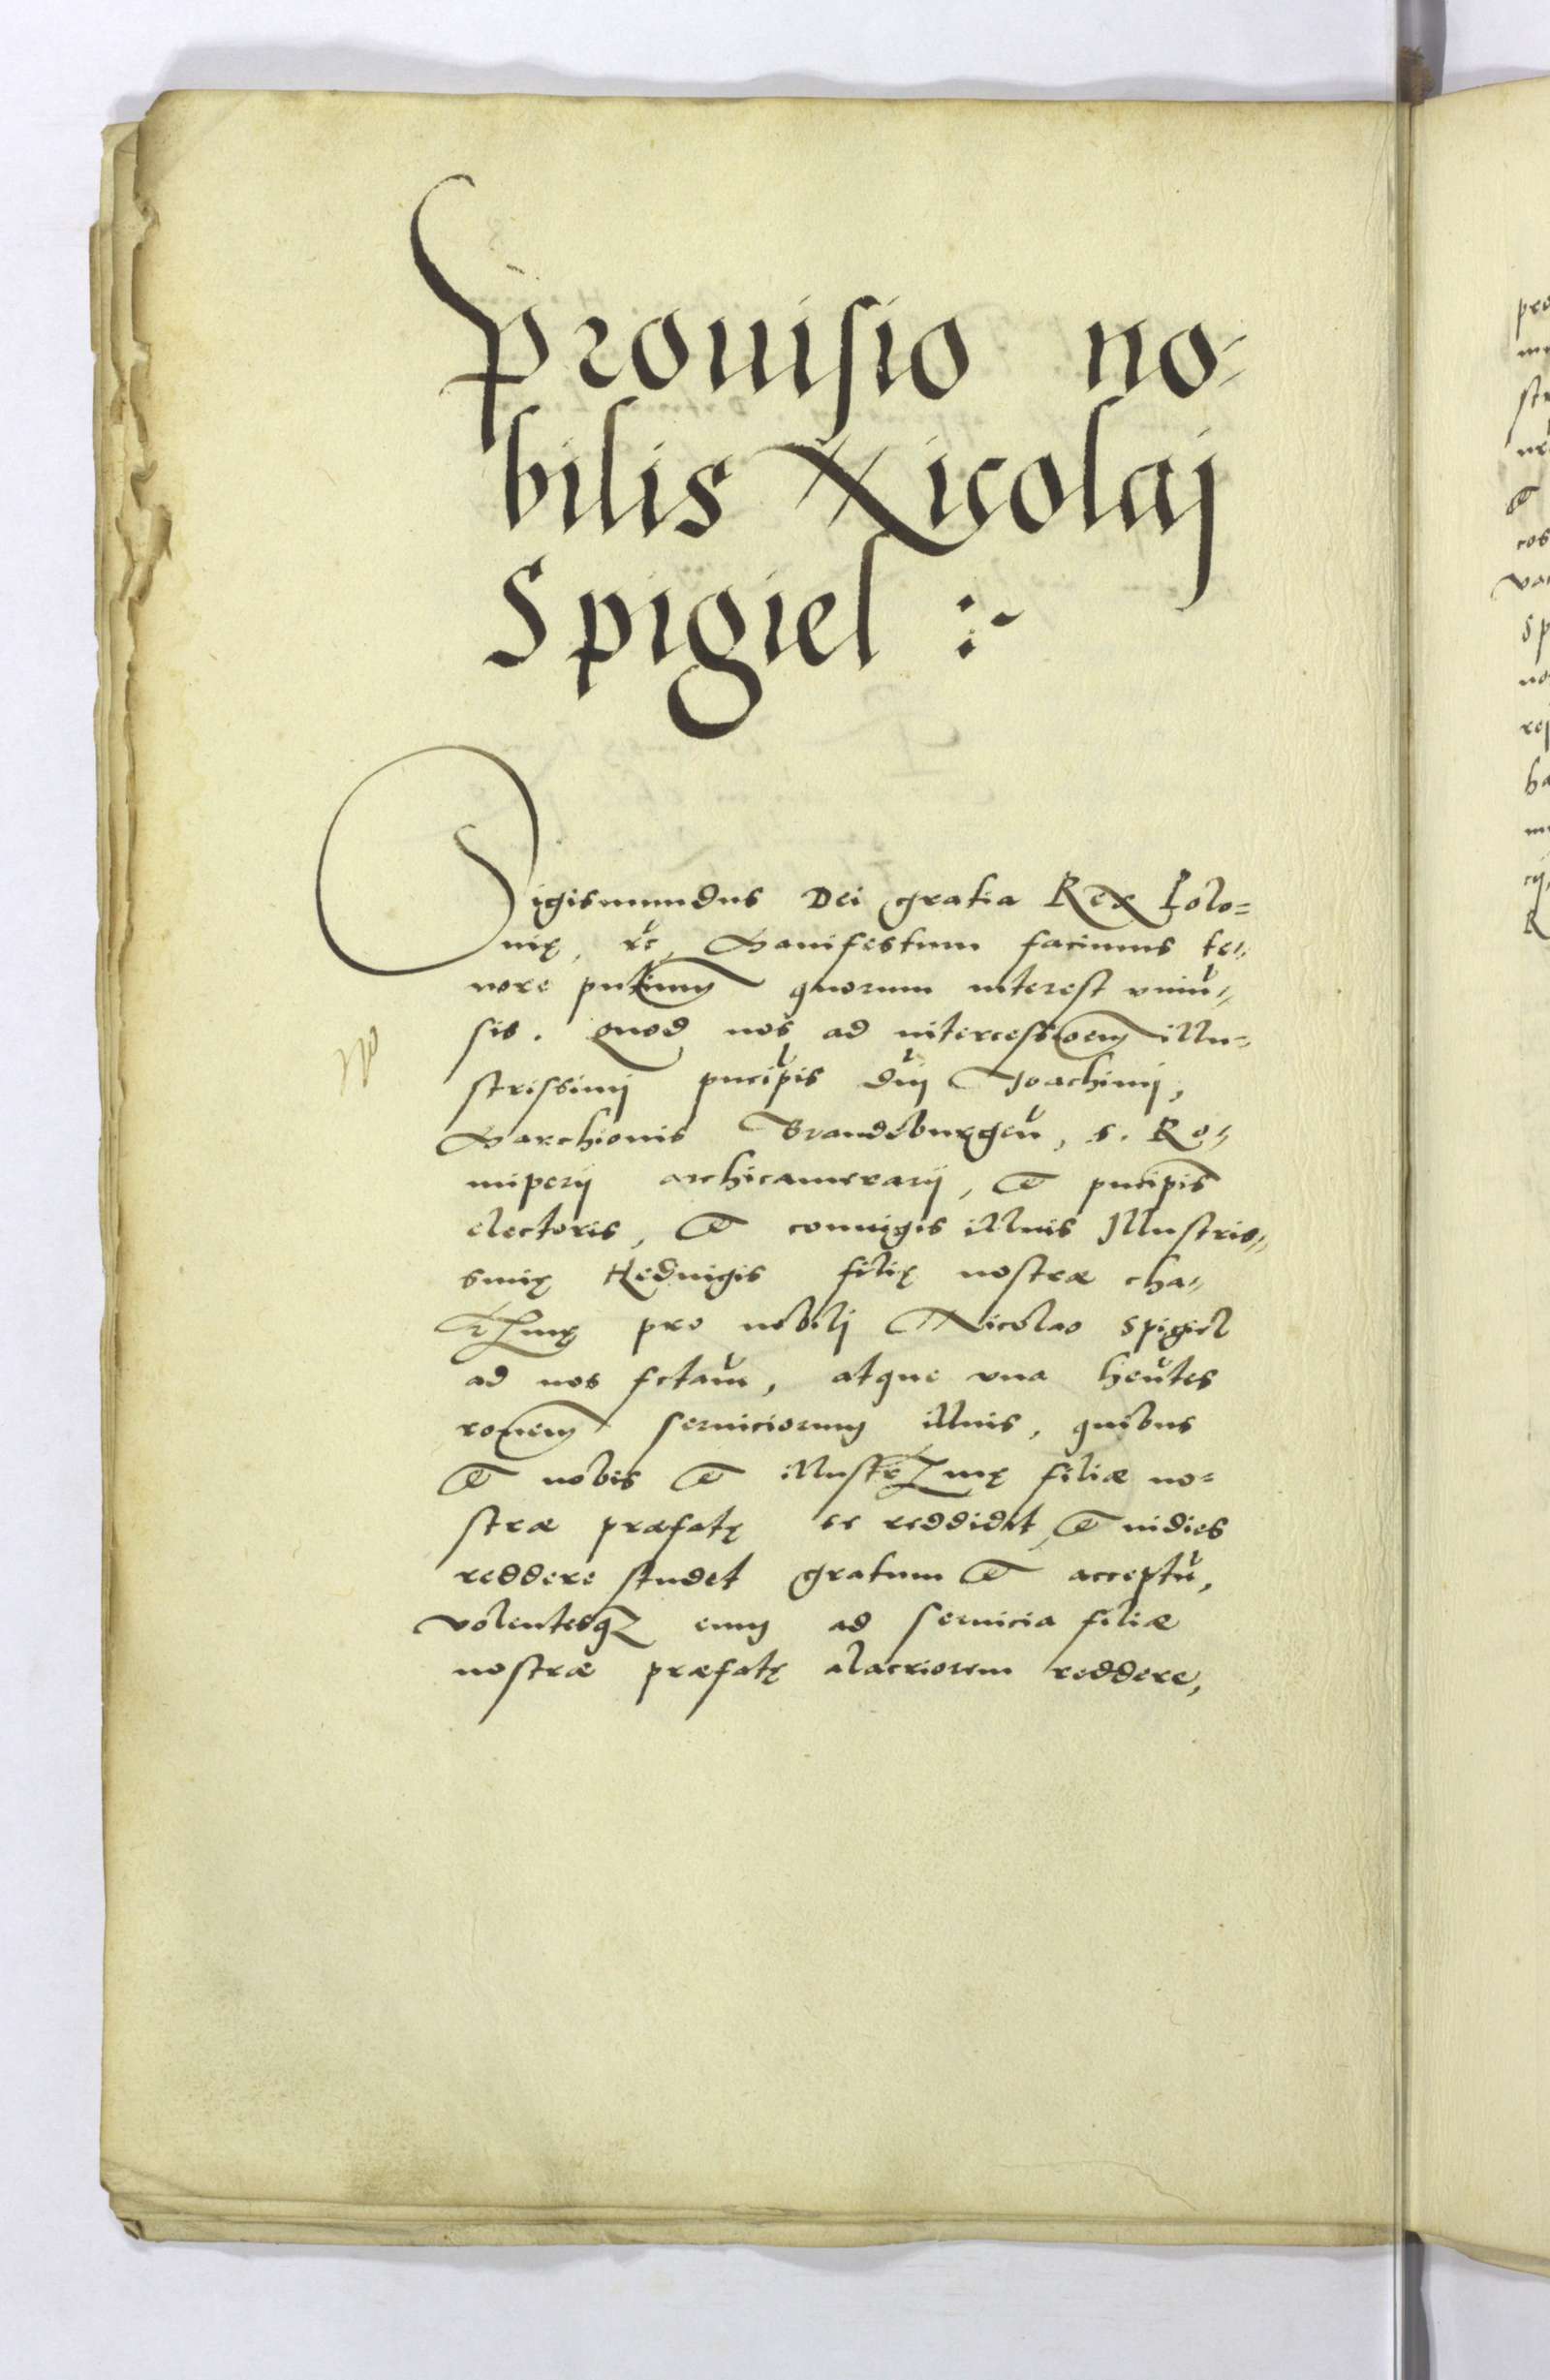 Prouisio no-
bilis Nicolaj
Spigiel :~
Sigismundus Dei gratia Rex Polo=
nię, &c, Manifestum facimus te-
nore pntium quorum interest vniu-
sis. Quod nos ad intercessioem illu-
strissimj pncipis dnj Joachimj,
Marchionis Brandeburgen, S. Ro-
imperij archicamerarij, & pncipis
electoris, & coniugis illius Illustris-
simę Hedvigis filię nostræ cha-
rissmę pro nobilj Nicolao Spigiel
ad nos fctam, atque vna hentes
ronem seruiciorum illius, quibus
& nobis & illustrissmę filiæ no=
stræ præfatę se reddidit, & indies
reddere studet gratum & acceptu,
volentesqz eum ad seruicia filiæ
nostræ præfatę alacriorem reddere,